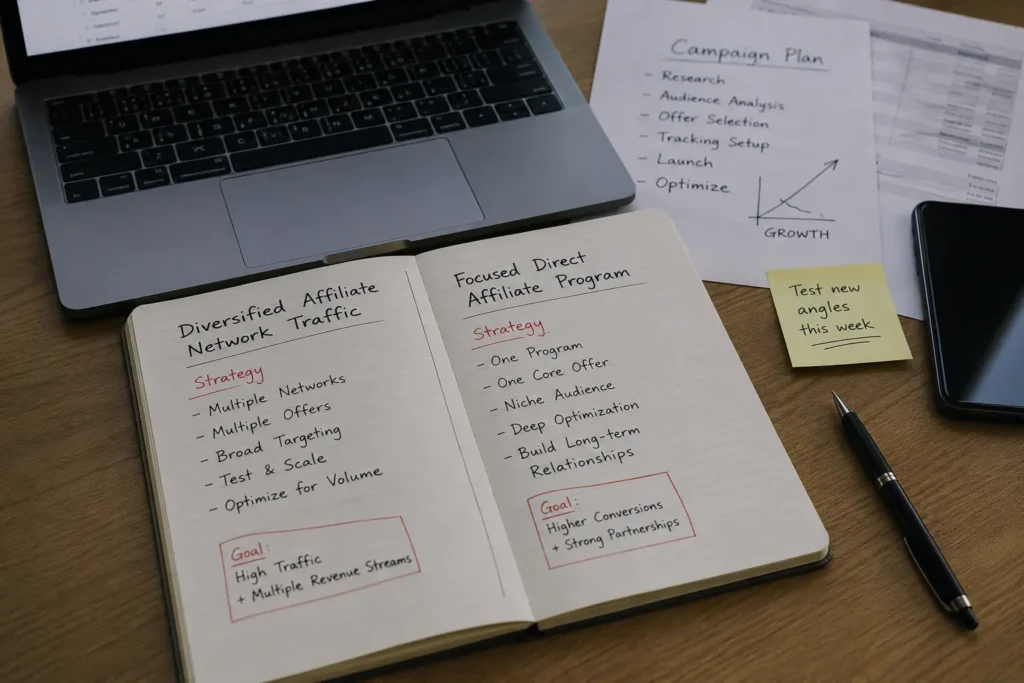 Diversified Affiliate
Network Traffic
Strategy
- Multiple Networks
- Multiple Offers
- Broad Targeting
- Test & Scale
- Optimize for Volume
Goal:
High Traffic
+ Multiple Revenue Streams
Focused Direct
Affiliate Program
Strategy
- One Program
- One Core Offer
- Niche Audience
- Deep Optimization
- Build Long-term
Relationships
Goal:
Higher Conversions
+ Strong Partnerships
Campaign Plan
- Research
- Audience Analysis
- Offer Selection
- Tracking Setup
- Launch
- Optimize
GROWTH
Test new
angles
this week